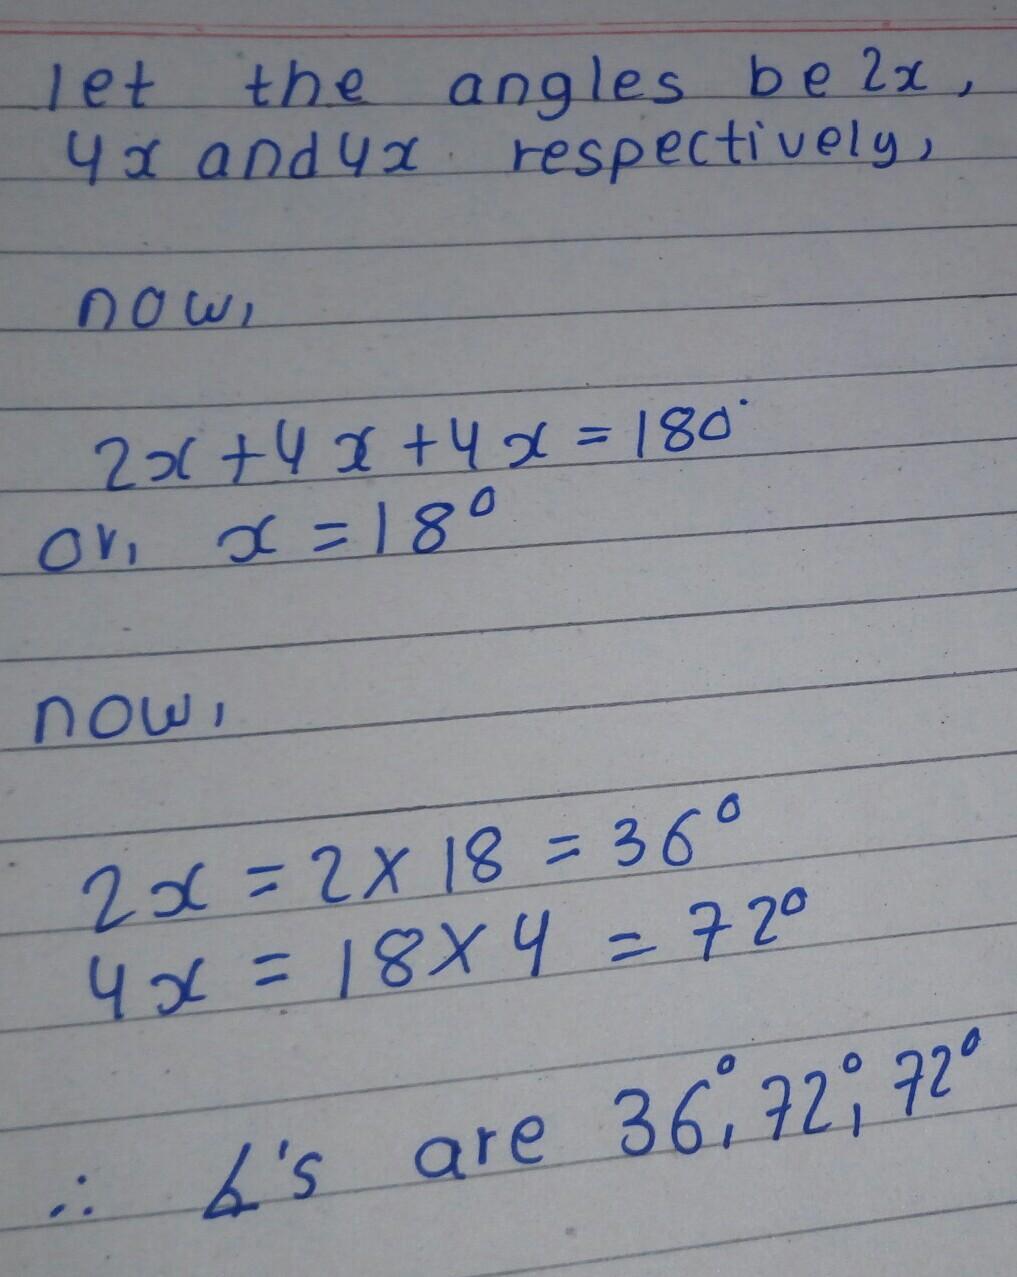 let the angles be 2x,
4x and 4x respectively,
now,
2x + 4x + 4x = 180°
or, x = 18°
now,
2x = 2 × 18 = 36°
4x = 18 × 4 = 72°
∴ ∠'s are 36°, 72°, 72°